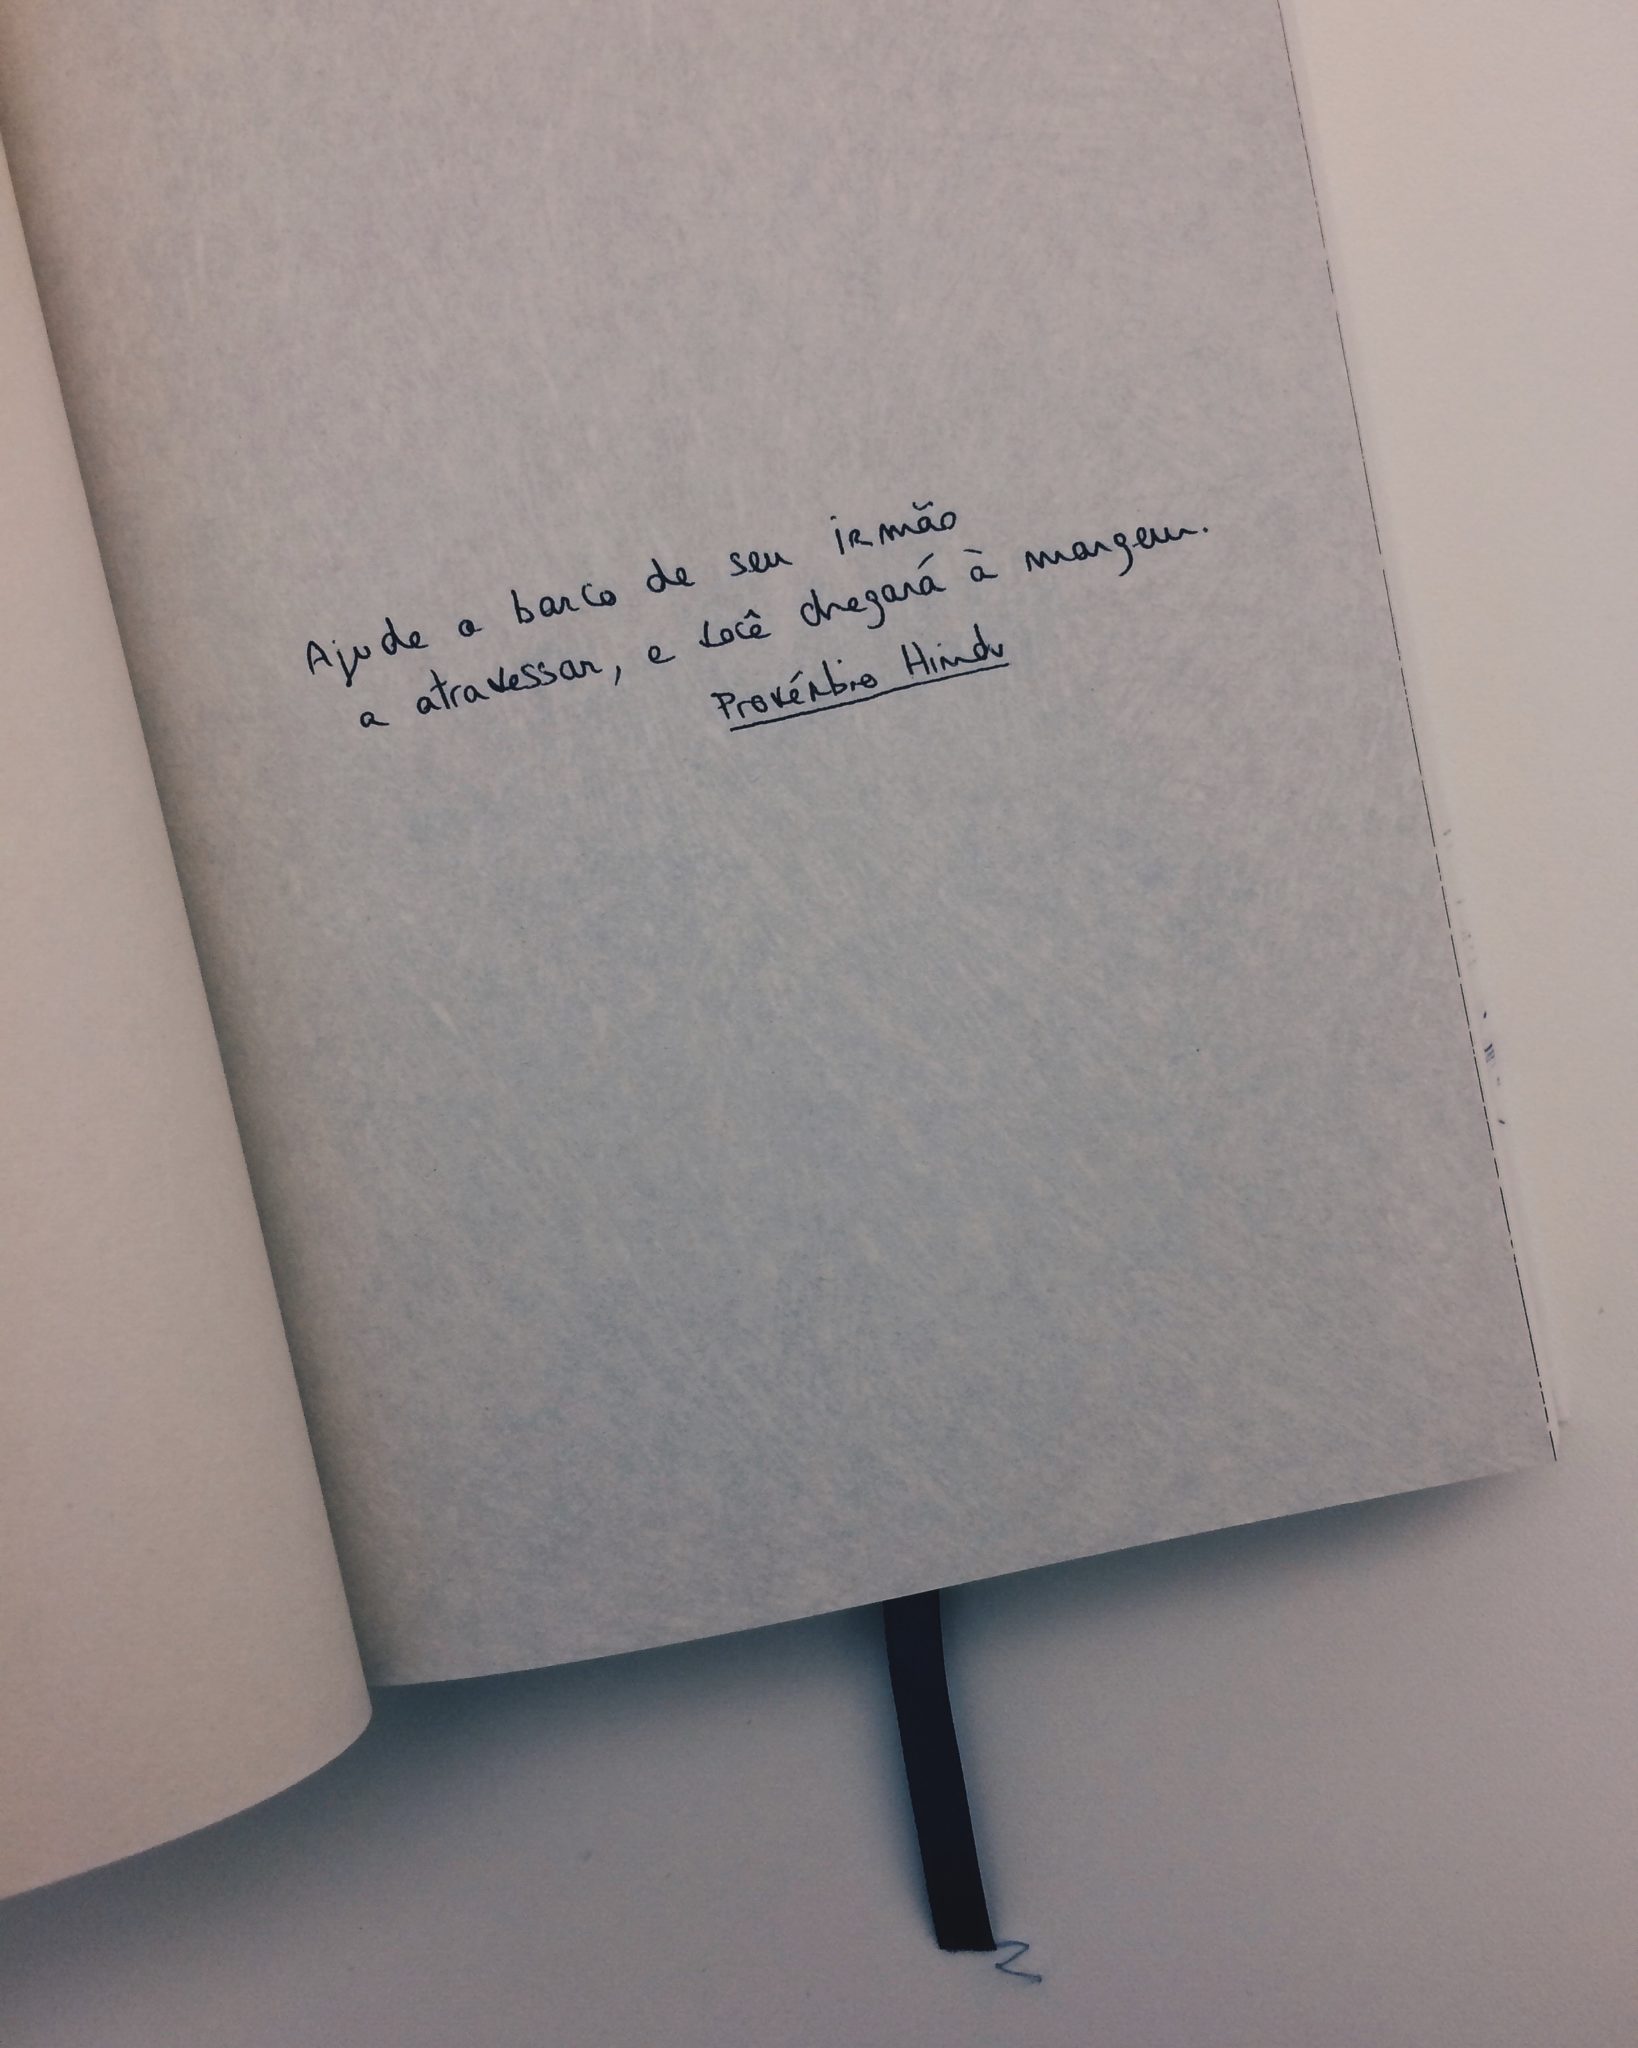 Ajude o barco de seu irmão
a atravessar, e você chegará à margem.
Provérbio Hindu